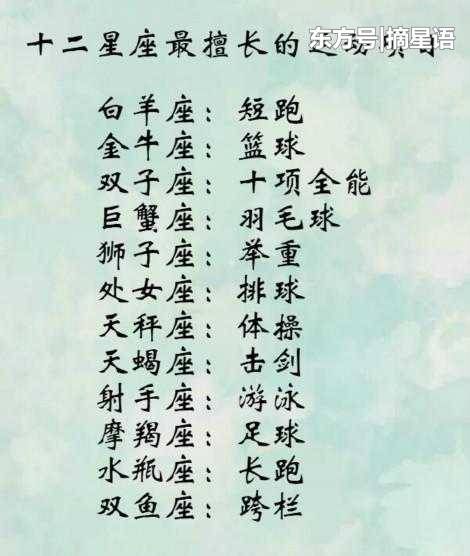 十二星座最擅长的运动项目
东方号|摘星语
白羊座：短跑
金牛座：篮球
双子座：十项全能
巨蟹座：羽毛球
狮子座：举重
处女座：排球
天秤座：体操
天蝎座：击剑
射手座：游泳
摩羯座：足球
水瓶座：长跑
双鱼座：跨栏